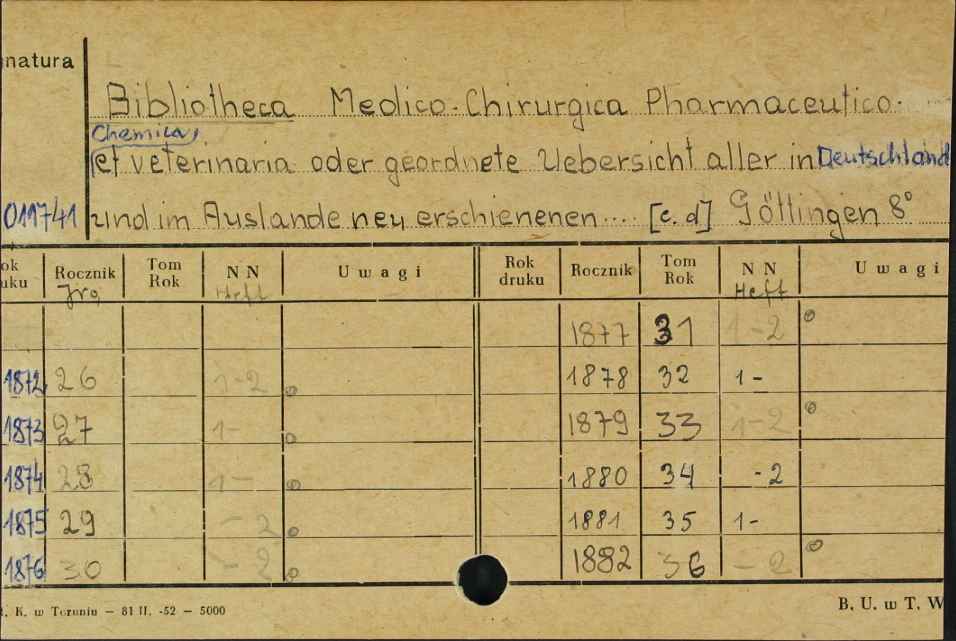 natura
Bibliotheca Medico-Chirurgica Pharmaceutico-
Chemica,
et veterinaria oder geordnete Uebersicht aller in Deutschland
011741 und im Auslande neu erschienenen.... [c. d] Göttingen 8°
ok uku Rocznik Jrg. Tom Rok NN Heft Uwagi Rok druku Rocznik Tom Rok NN Heft Uwagi
1877 31 1-2
1872 26 1-2 1878 32 1-
1873 27 1- 1879 33 1-2
1874 28 1- 1880 34 -2
1875 29 -2 1881 35 1-
1876 30 -2 1882 36 -2
. K. w Toruniu — 81 II. -52 — 5000 B. U. w T. W